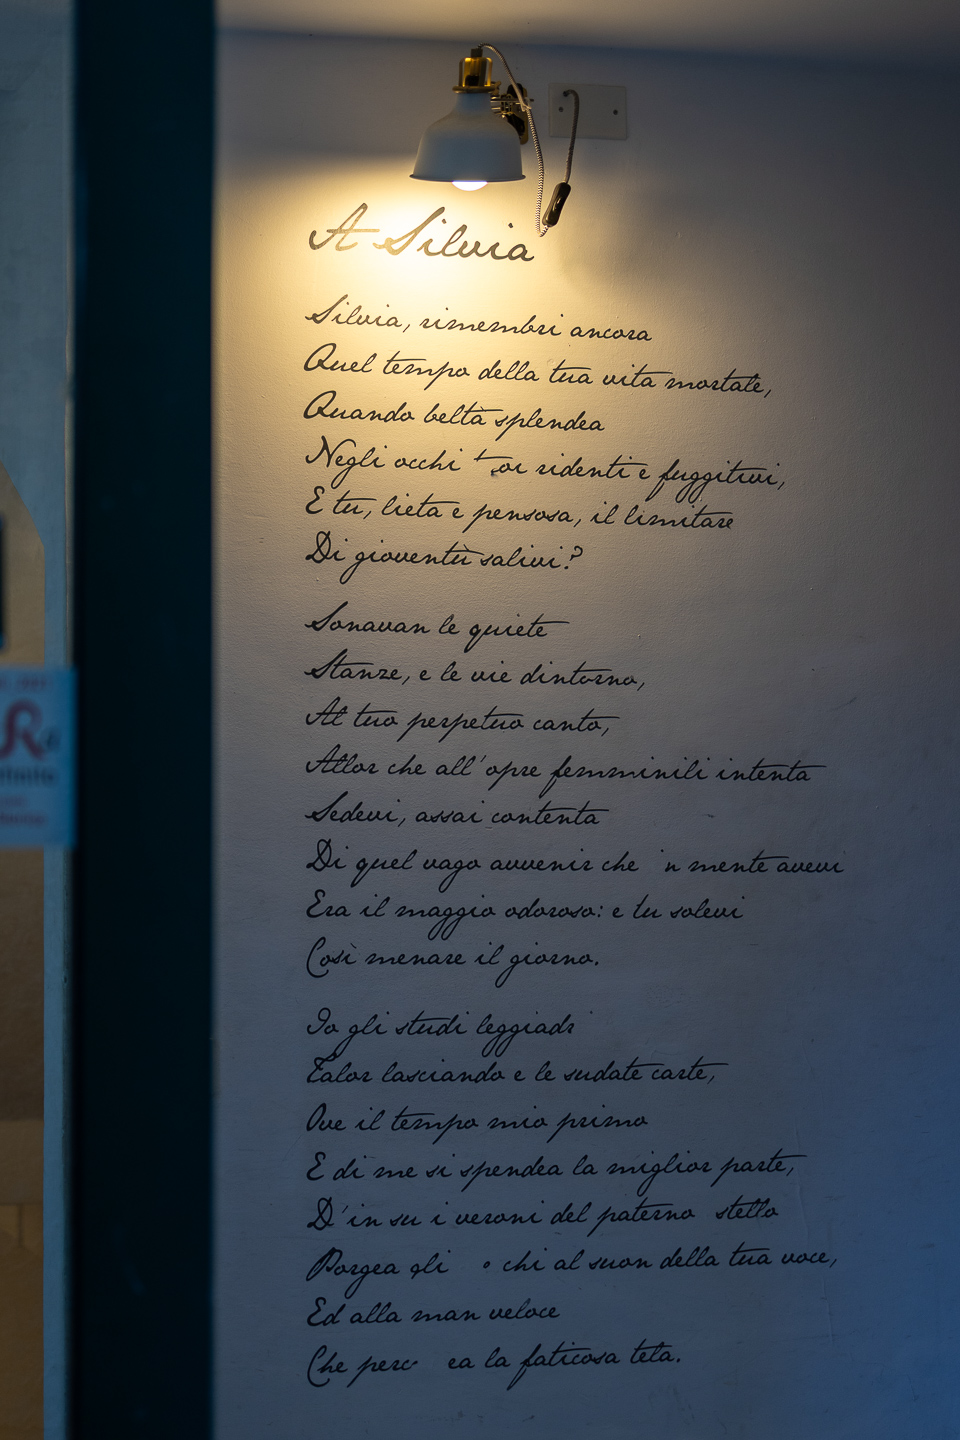 A Silvia
Silvia, rimembri ancora
Quel tempo della tua vita mortale,
Quando beltà splendea
Negli occhi t oi ridenti e fuggitivi,
E tu, lieta e pensosa, il limitare
Di gioventù salivi?
Sonavan le quiete
Stanze, e le vie dintorno,
Al tuo perpetuo canto,
Allor che all'opre femminili intenta
Sedevi, assai contenta
Di quel vago avvenir che n mente avevi
Era il maggio odoroso: e tu solevi
Così menare il giorno.
Io gli studi leggiadr
Talor lasciando e le sudate carte,
Ove il tempo mio primo
E di me si spendea la miglior parte,
D'in su i veroni del paterno stello
Porgea gli o chi al suon della tua voce,
Ed alla man veloce
Che perc ea la faticosa tela.